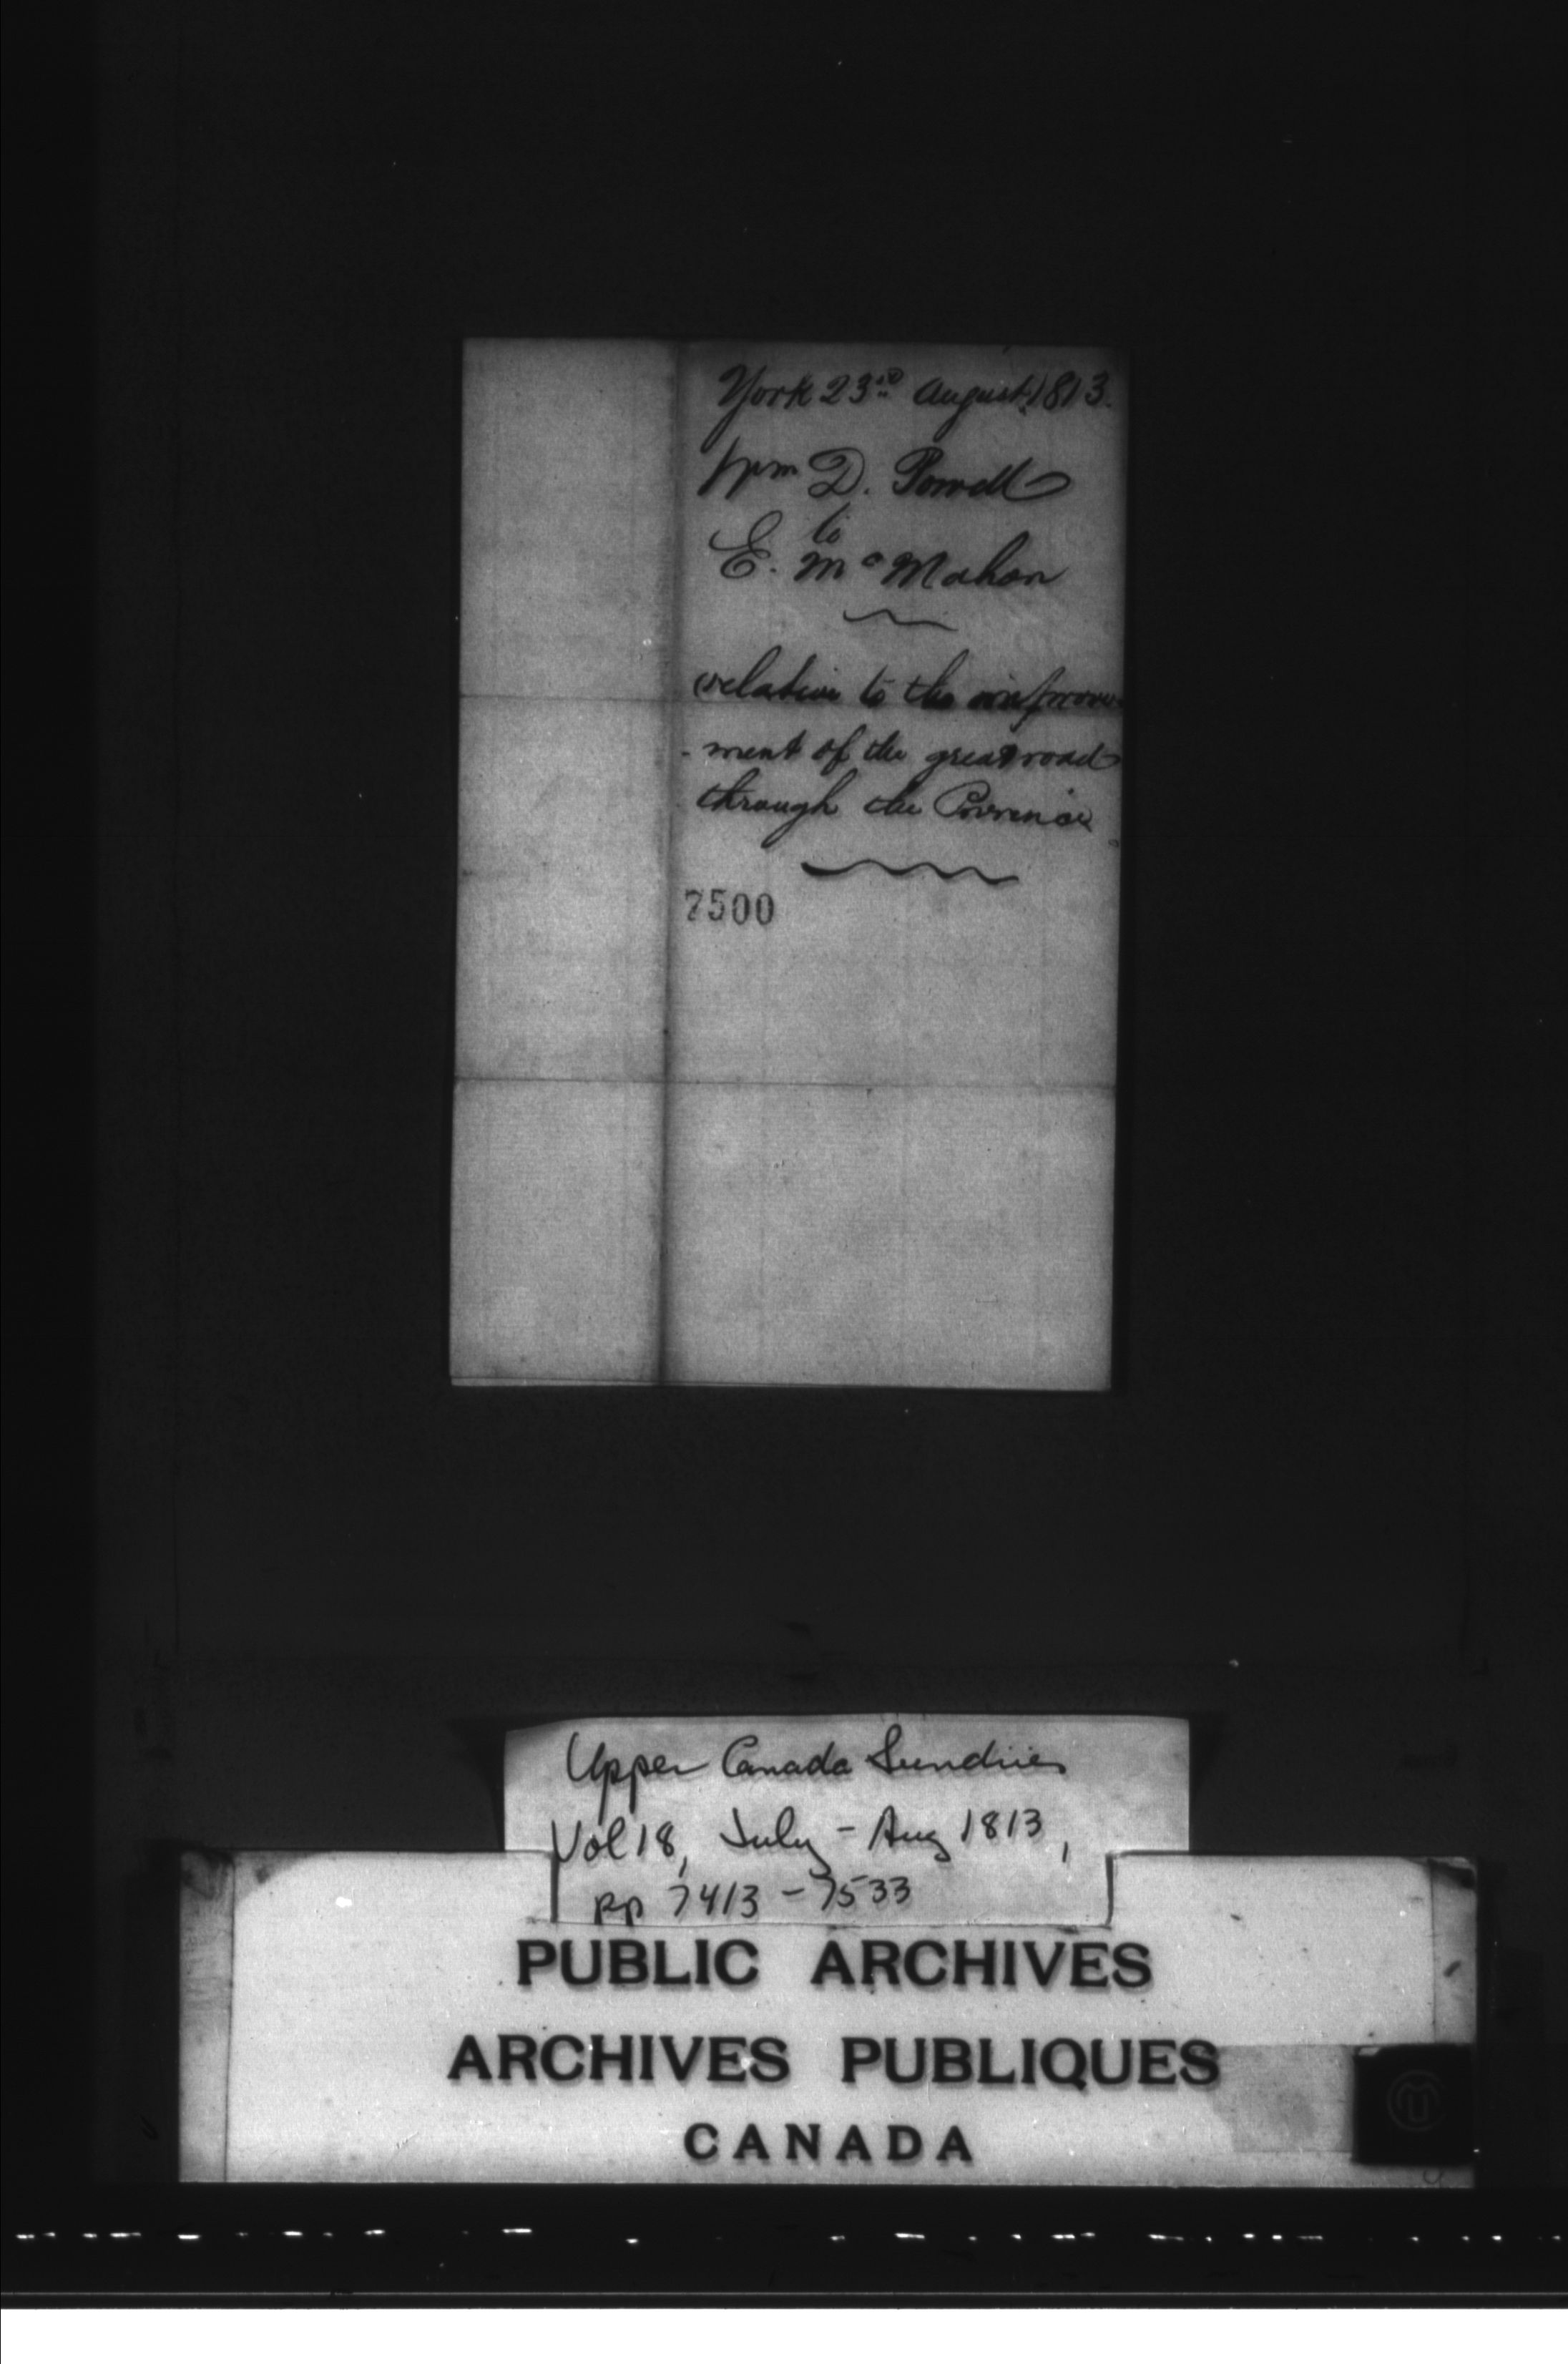 York 23rd August 1813.
Wm D. Powell
to
E. McMahon
relative to the improve
-ment of the great road
through the Province
7500
Upper Canada Sundries
Vol 18, July - Aug 1813,
pp 7413 - 7533
PUBLIC ARCHIVES
ARCHIVES PUBLIQUES
CANADA